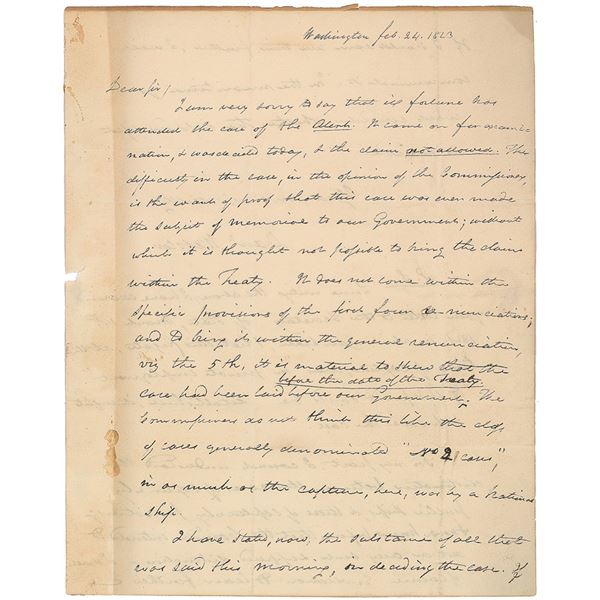 Washington Feb. 24. 1823
Dear Sir,
I am very sorry to say that ill fortune has
attended the case of the Alert. It came on for exami-
nation, & was decided today, & the claim not allowed. The
difficulty in the case, in the opinion of the Commissioners,
is the want of proof that this case was ever made
the subject of memorial to our Government; without
which it is thought not possible to bring the claim
within the Treaty. It does not come within the
specific provisions of the first four renunciations;
and to bring it within the general renunciation,
viz the 5th, it is material to shew that the
before the date of the Treaty.
case had been laid before our Government. The
Commissioners do not think this like the class
of cases generally denominated "No 2 cases",
in as much as the capture, here, was by a National
ship.
I have stated, now, the substance of all that
was said this morning, in deciding the case. If